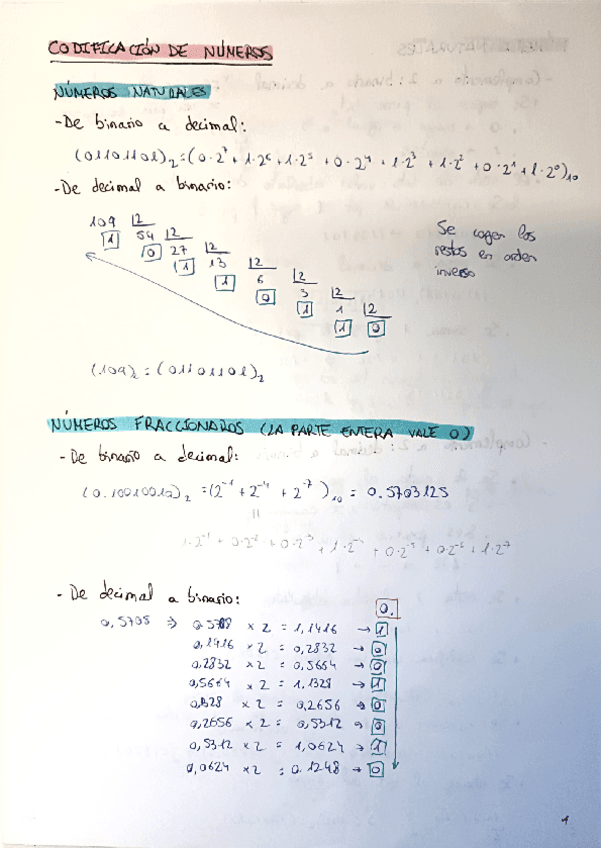 CODIFICACIÓN DE NÚMEROS
NÚMEROS NATURALES
- De binario a decimal:
(01101101)₂=(0·2⁷+1·2⁶+1·2⁵+0·2⁴+1·2³+1·2²+0·2¹+1·2⁰)₁₀
- De decimal a binario:
109 |2
1 54 |2
0 27 |2
1 13 |2
1 6 |2
0 3 |2
1 1 |2
1 0
Se cogen los
restos en orden
inverso
(109)₂ = (01101101)₂
NÚMEROS FRACCIONADOS (LA PARTE ENTERA VALE 0)
- De binario a decimal:
(0.1001001)₂ =(2⁻¹+2⁻⁴+2⁻⁷)₁₀ = 0.5703125
=
1·2⁻¹+0·2⁻²+0·2⁻³+1·2⁻⁴+0·2⁻⁵+0·2⁻⁶+1·2⁻⁷
- De decimal a binario:
0.
0,5708 ⇒ 0,5708 × 2 = 1,1416 → 1
0,1416 × 2 = 0,2832 → 0
0,2832 × 2 = 0,5664 → 0
0,5664 × 2 = 1,1328 → 1
0,1328 × 2 = 0,2656 → 0
0,2656 × 2 = 0,5312 → 0
0,5312 × 2 = 1,0624 → 1
0,0624 × 2 = 0.1248 → 0
1